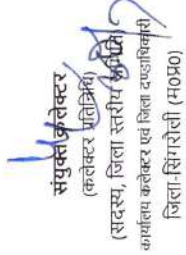 संयुक्त कलेक्टर
(कलेक्टर प्रतिनिधि)
(सदस्य, जिला स्तरीय समिति)
कार्यालय कलेक्टर एवं जिला दण्डाधिकारी
जिला-सिंगरौली (म0प्र0)